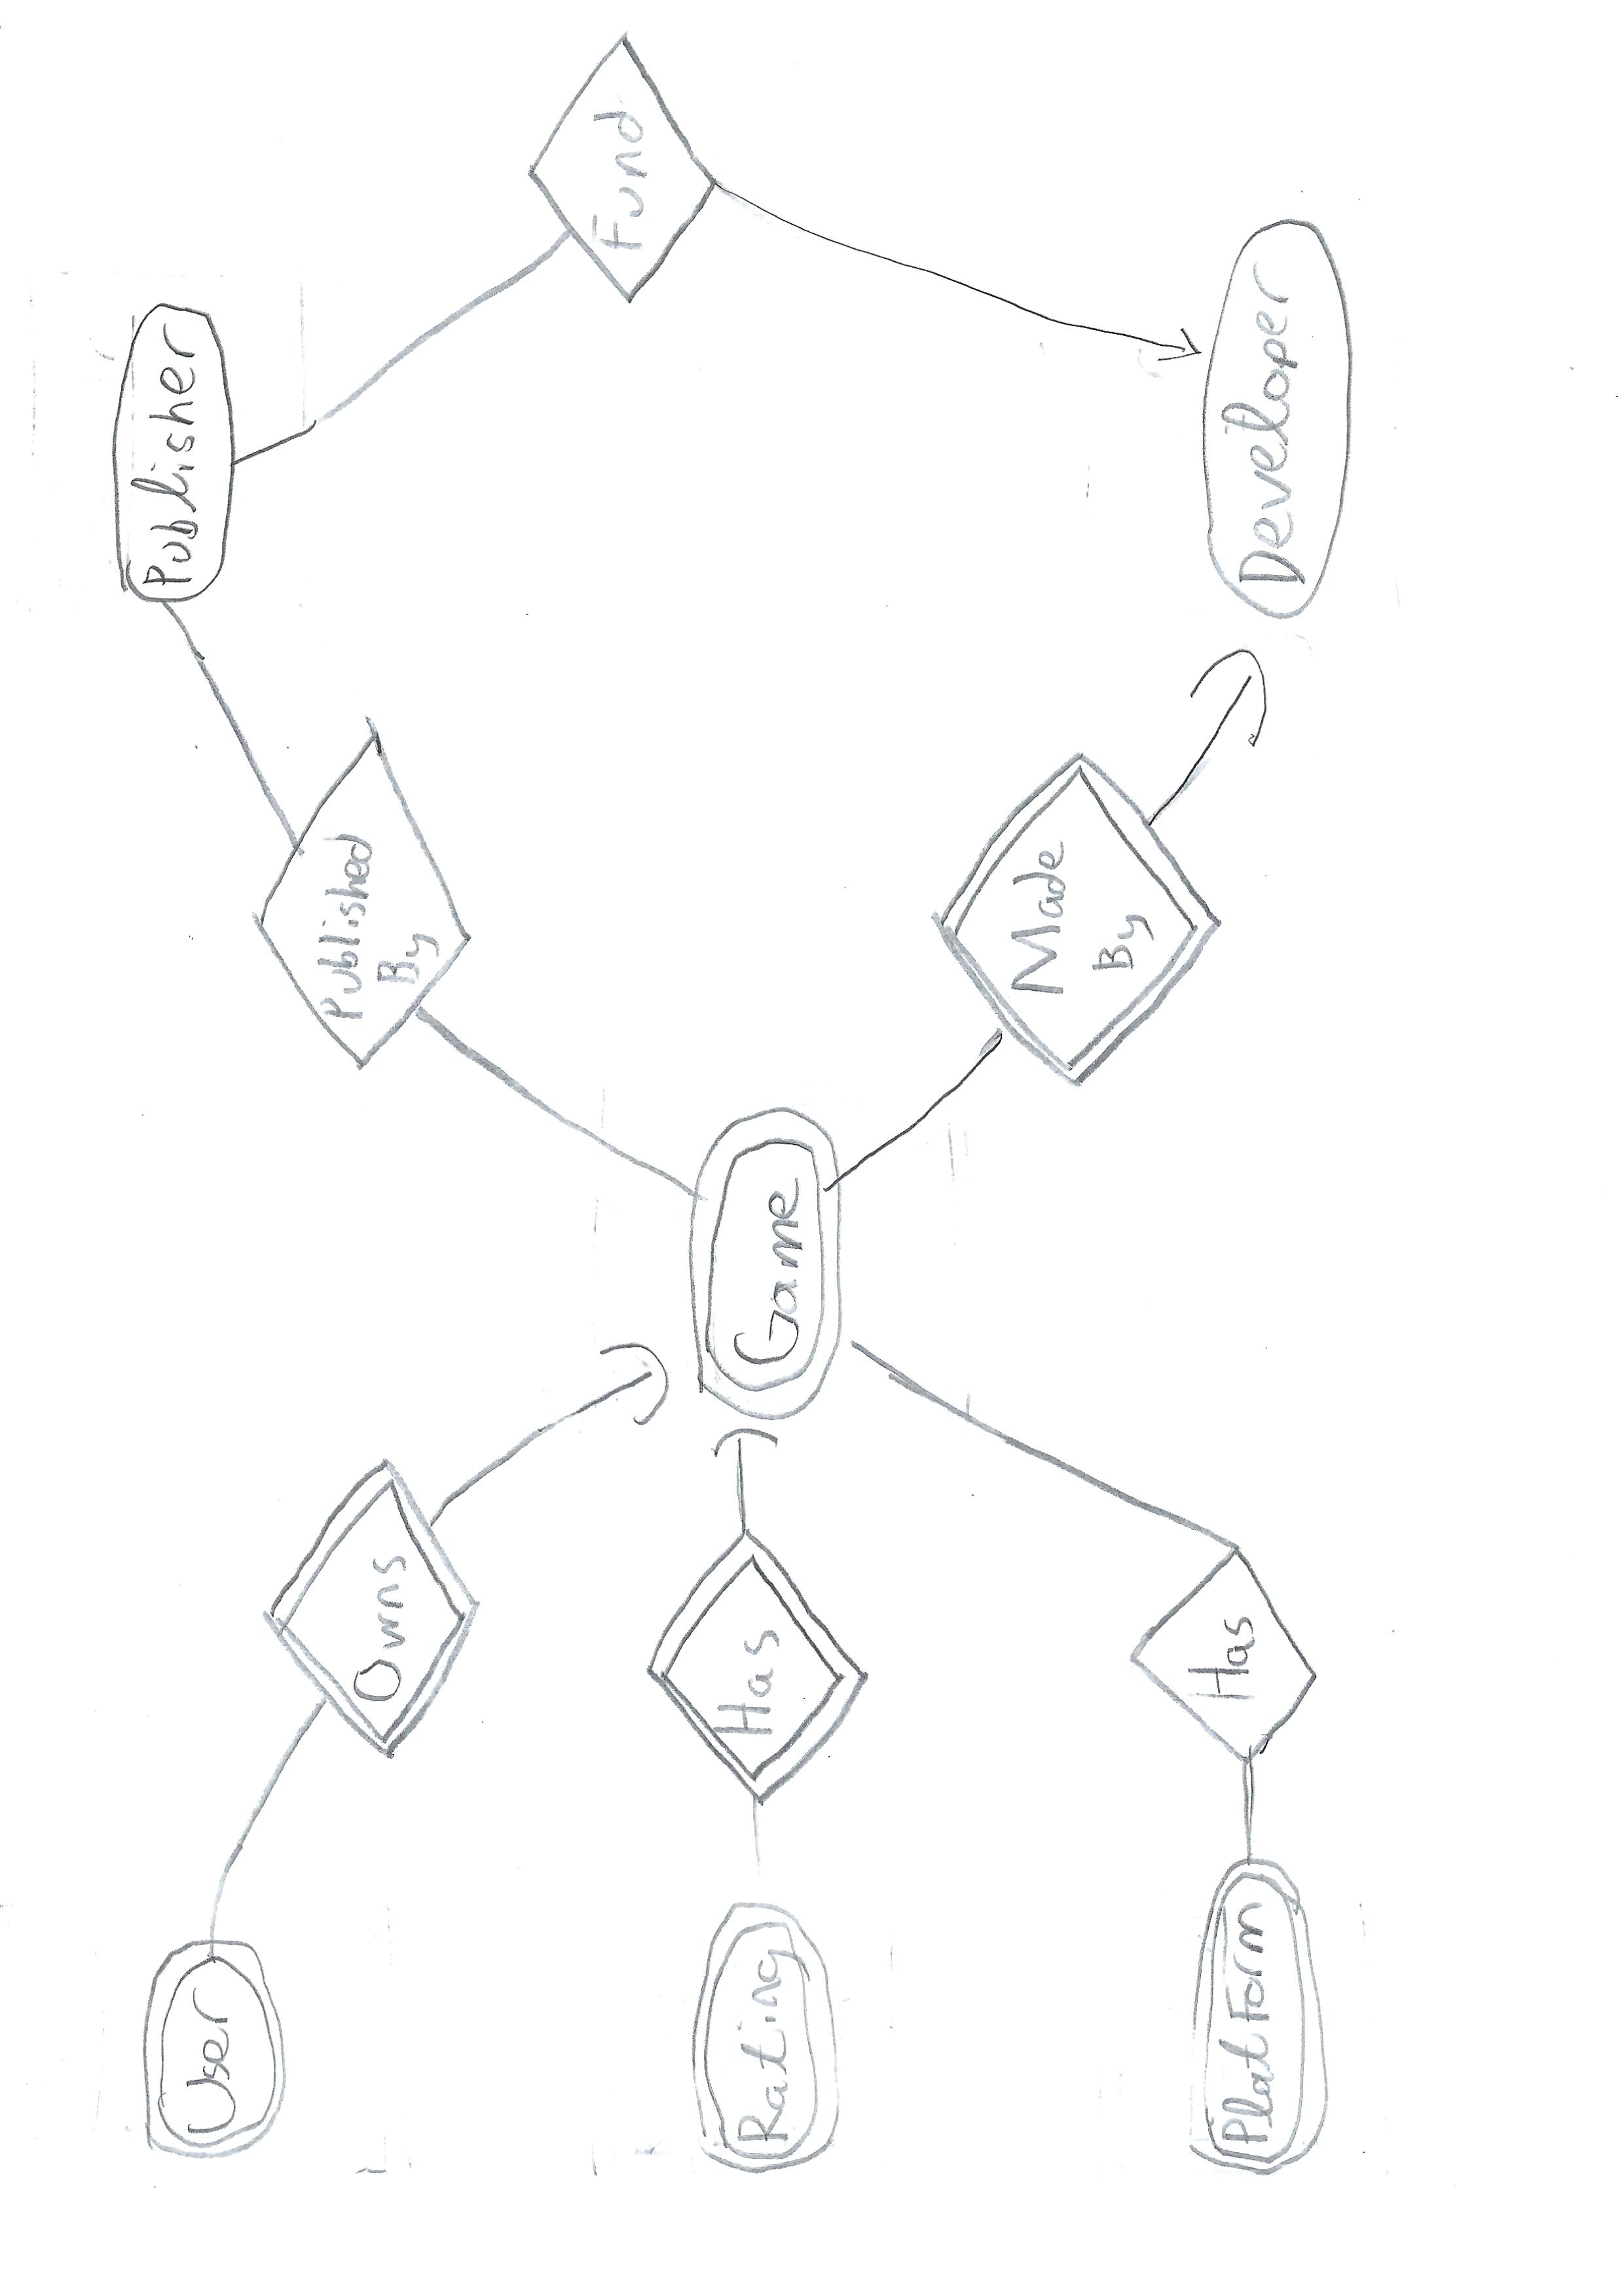 User
Publisher
Owns
Published
By
Fund
Rating
Has
Game
Made
By
Platform
Has
Developer